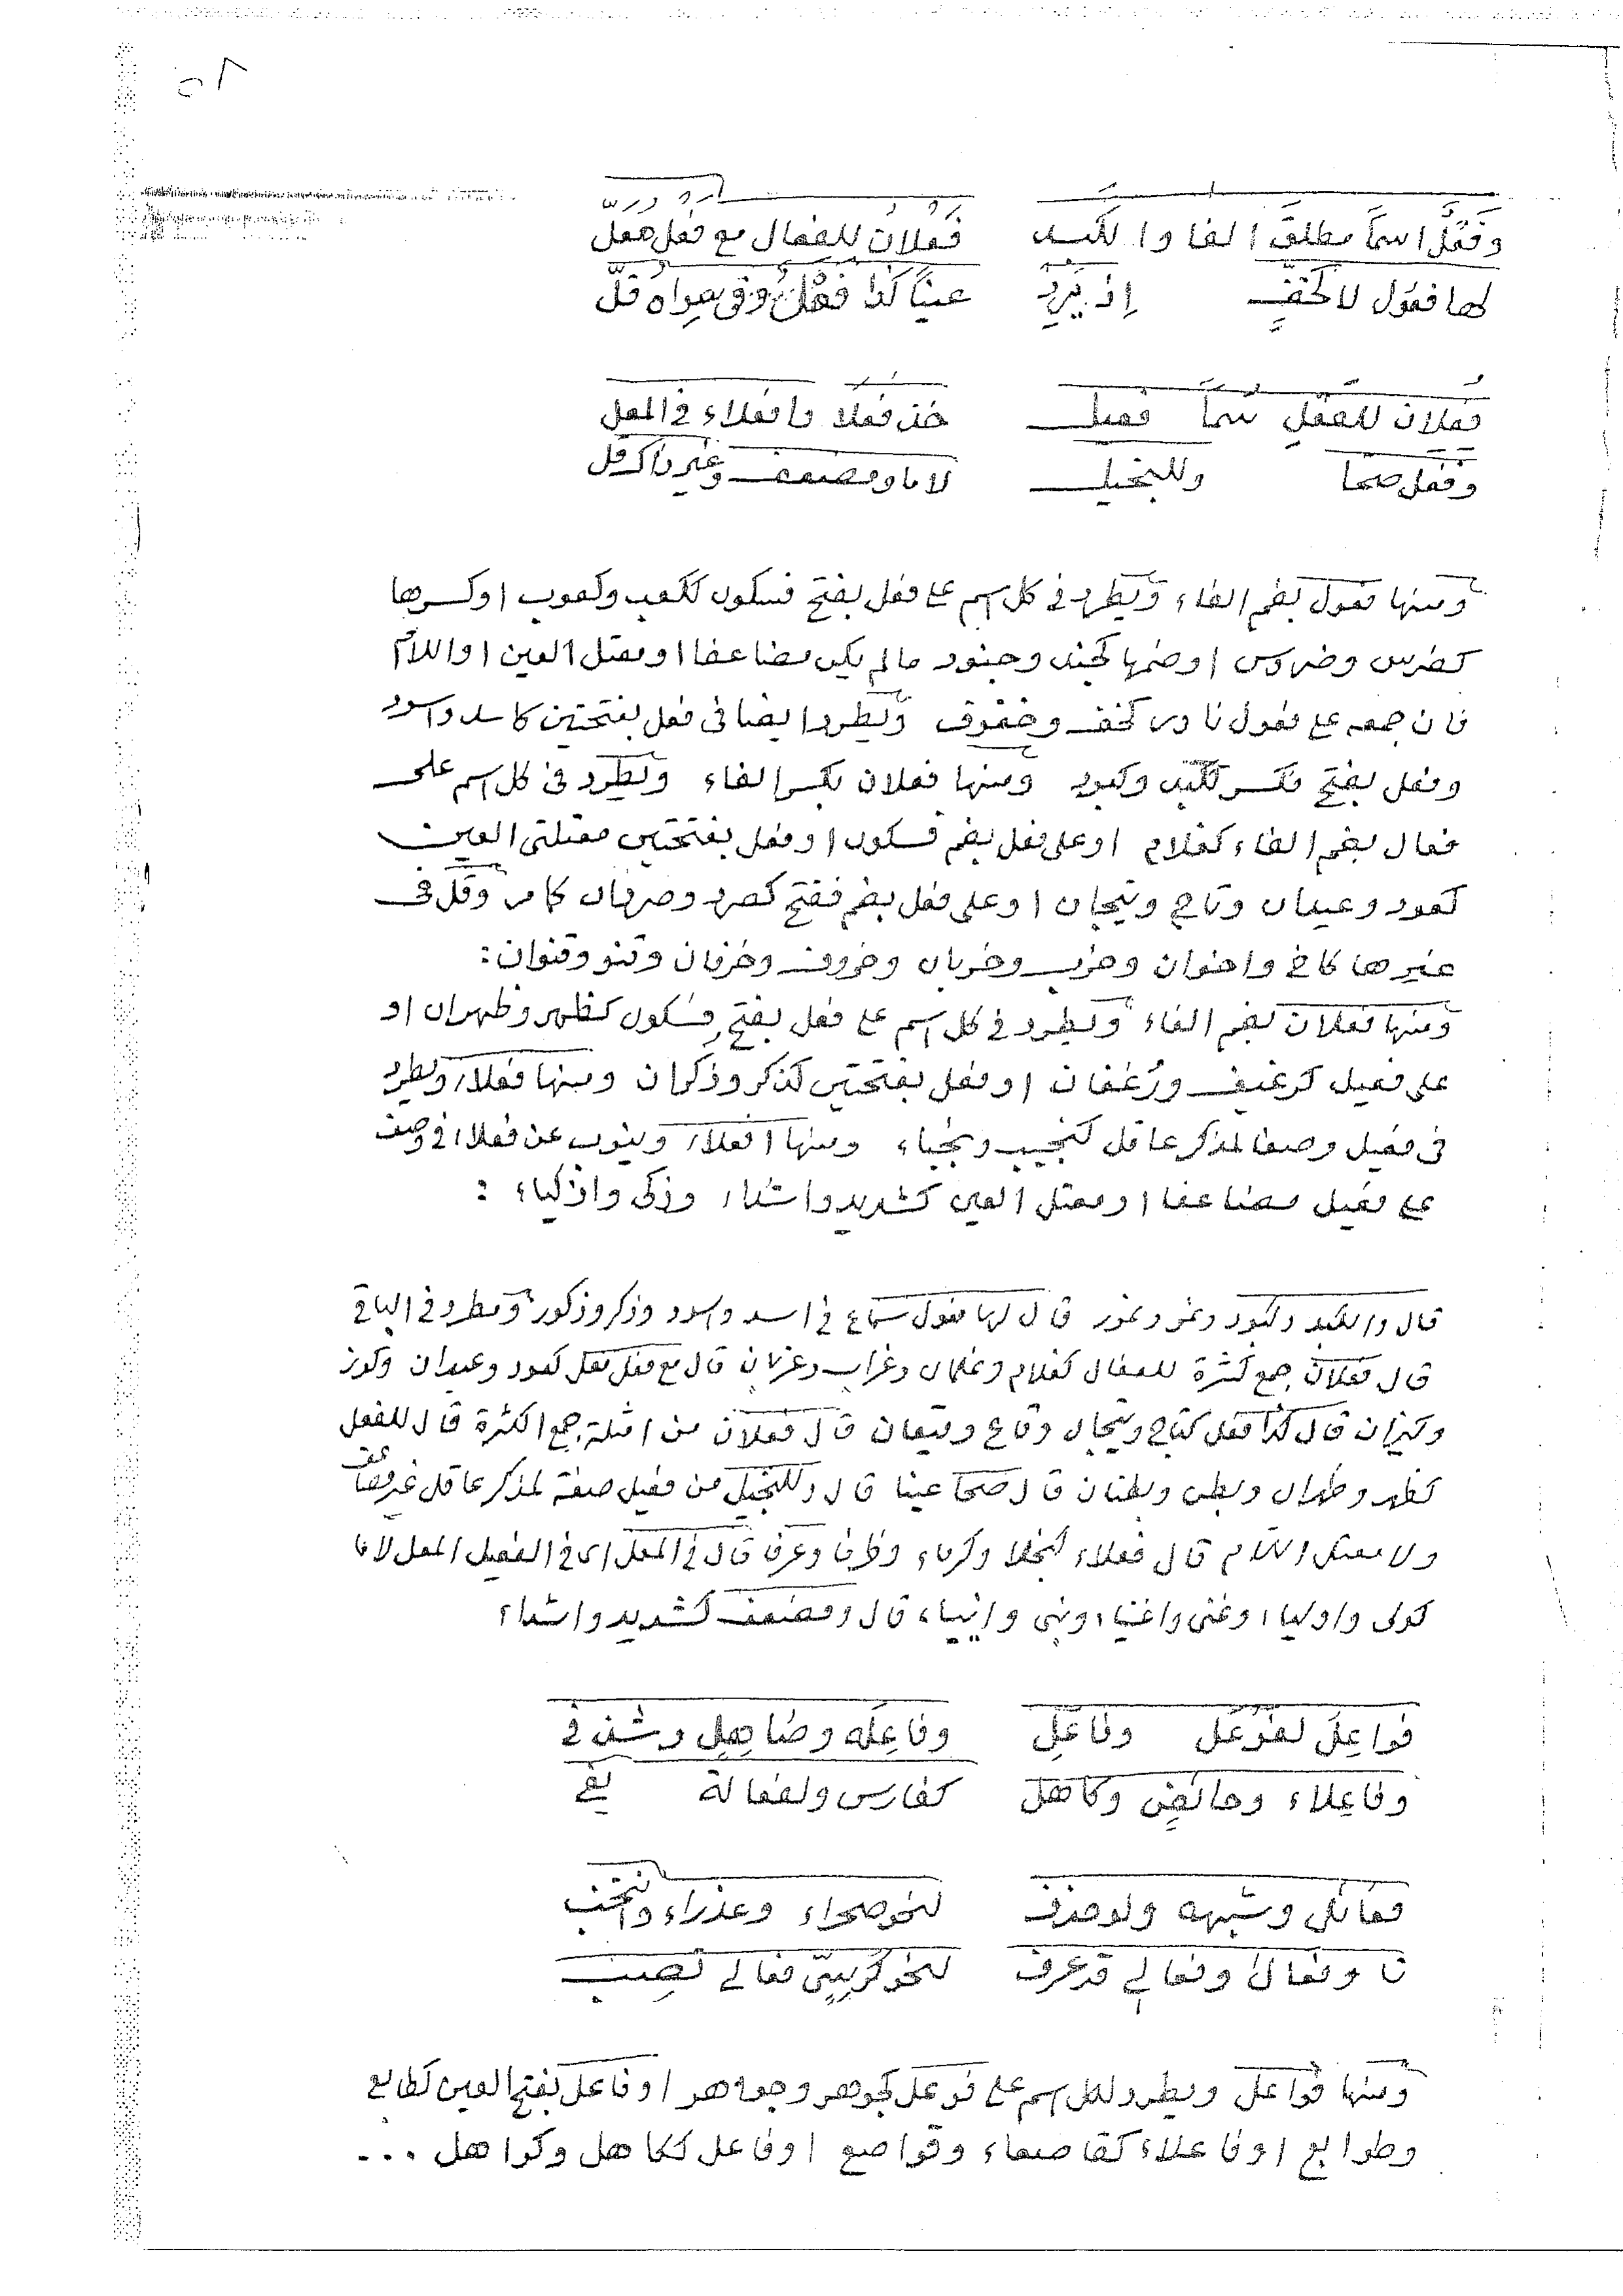 ٥٨
وفَعْلٌ اسماً مطلقَ الفا والكبد فَعُلانٌ للفعال مع فعل فعل
لها فعول لا كخفٍّ إذ يَرِد عيناً كذا فعل وفى سواه قلّ
فعلان للفعل سما فعيل خذ فعلا وافعلاء في المعل
وفعل صحا وللبخيل لاما ومضعف وغير ذاك قل
ومنها فعول بضم الفاء ويطرد في كل اسم على فعل بفتح فسكون ككعب وكعوب او كسرها
كضرس وضروس او ضمها كجند وجنود ما لم يكن مضاعفا او معتل العين او اللام
فان جمعه على فعول نادر كخف وخفوف ويطرد ايضا فى فعل بفتحتين كاسد واسود
وفعل بفتح فكسر ككبد وكبود ومنها فعلان بكسر الفاء ويطرد فى كل اسم على
فعال بضم الفاء كغلام او على فعل بضم فسكون او فعل بفتحتين معتلتى العين
كعود وعيدان وتاج وتيجان او على فعل بضم ففتح كصرد وصردان كما مر وقل فى
غيرها كاخ واخوان وخرب وخربان وخروف وخرفان وقنو وقنوان:
ومنها فعلان بضم الفاء ويطرد في كل اسم على فعل بفتح فسكون كظهر وظهران او
على فعيل كرغيف ورُغفان او فعل بفتحتين كذكر وذكران ومنها فعلاء ويطرد
فى فعيل وصفا لمذكر عاقل كنجيب ونجباء ومنها افعلاء وينوب عن فعلاء فى وصف
على فعيل مضاعفا او معتل العين كشديد واشداء وزكى واذكياء :
قال والكبد وكبود ونمر ونمور قال لها فعول سماع في اسد واسود وذكر وذكور ومطرد في الباقي
قال فعلان جمع كثرة للفعال كغلام وغلمان وغراب وغربان قال مع فعل فعل كعود وعيدان وكوز
وكيزان قال كذا فعل كتاج وتيجان وقاع وقيعان قال فعلان من امثلة جمع الكثرة قال للفعل
كظهر وظهران وبطن وبطنان قال صحا عينا قال وللبخيل من فعيل صفة لمذكر عاقل غير مضاعف
ولا معتل اللام قال فعلاء كبخلا وكرماء وظرفا وعرفا قال في المعل اى فى الفعيل المعل لاما
كولى واولياء وغنى واغنياء ونبى وانبياء قال ومضعف كشديد واشداء
فواعِلَ لفَوْعَل وفاعَلِ وفاعِلَه وصاهِلٍ وشذ في
وفاعِلاء وحائضٍ وكاهل كفارس ولفعالة يفي
فعائل وشبهه ولو حذف لنحو صحراء وعذراء وانتخب
تا وفعالى وفعالي قد عرف لنحو كرسيٍّ فعالي تصب
ومنها فواعل ويطرد لكل اسم على فوعل كجوهر وجواهر او فاعل بفتح العين كطابع
وطوابع او فاعلاء كقاصعاء وقواصع او فاعل ككاهل وكواهل ...